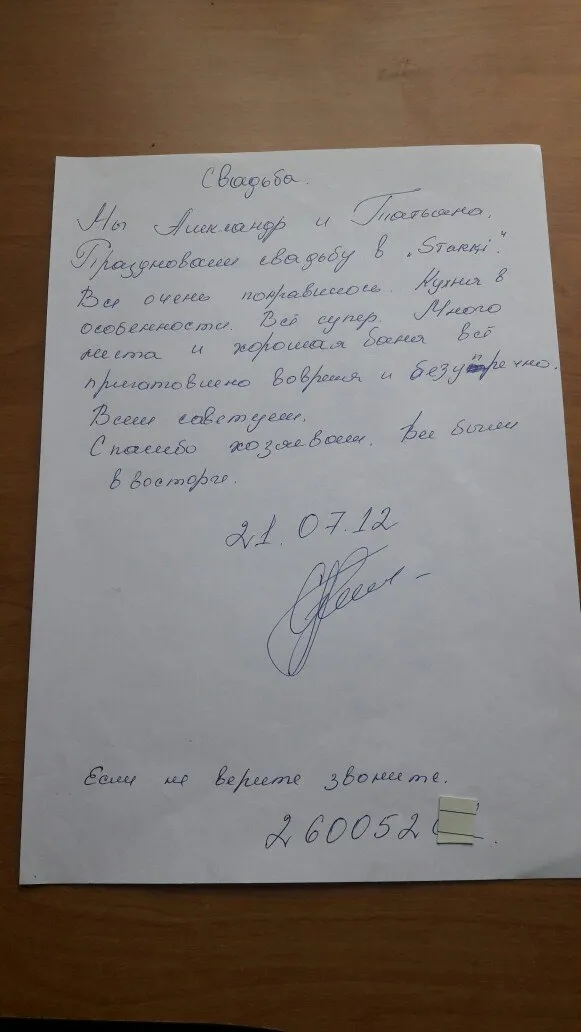 Свадьба.
Мы Александр и Татьяна.
Праздновали свадьбу в „Starki".
Все очень понравилось. Кухня в
особенности. Всё супер. Много
места и хорошая баня всё
приготовлено вовремя и безупречно.
Всем советуем.
Спасибо хозяевам. Все были
в восторге.
21.07.12
Если не верите звоните.
260052